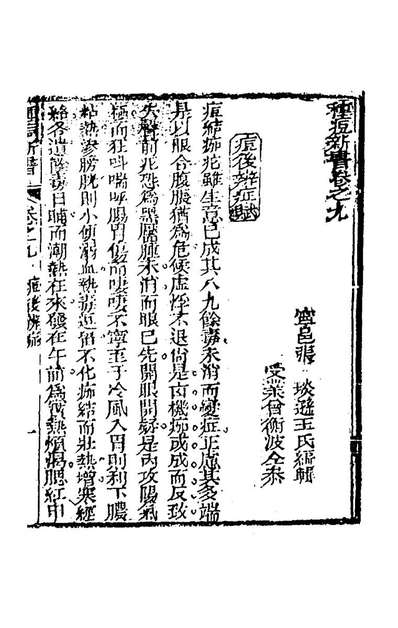 種痘新書卷之九
寧邑張 琰遜玉氏編輯
受業曾衡波仝參
痘後辨症賦
痘結痂疕雖生意已成其八九餘毒未消而變症正慮其多端
是以眼合腹脹猶為危候虛浮不退尚是凶機痂或成而反致
失 前 恐為 腫未消而眼已先開眼閉疑是內攻腸氣
極而狂叫喘呼腸胃傷而 不寧至于冷風入胃則利下膿
粘熱滲膀胱則小便溺血熱毒逗留不化痂結而壯熱增寒經
絡各遺 毒日晡而潮熱往來發在午前為實熱煩渴腮紅申
種痘新書 卷之九 痘後 症